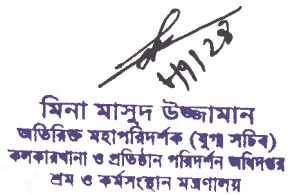 মিনা মাসুদ উজ্জামান
অতিরিক্ত মহাপরিদর্শক (যুগ্ম সচিব)
কলকারখানা ও প্রতিষ্ঠান পরিদর্শন অধিদপ্তর
শ্রম ও কর্মসংস্থান মন্ত্রণালয়